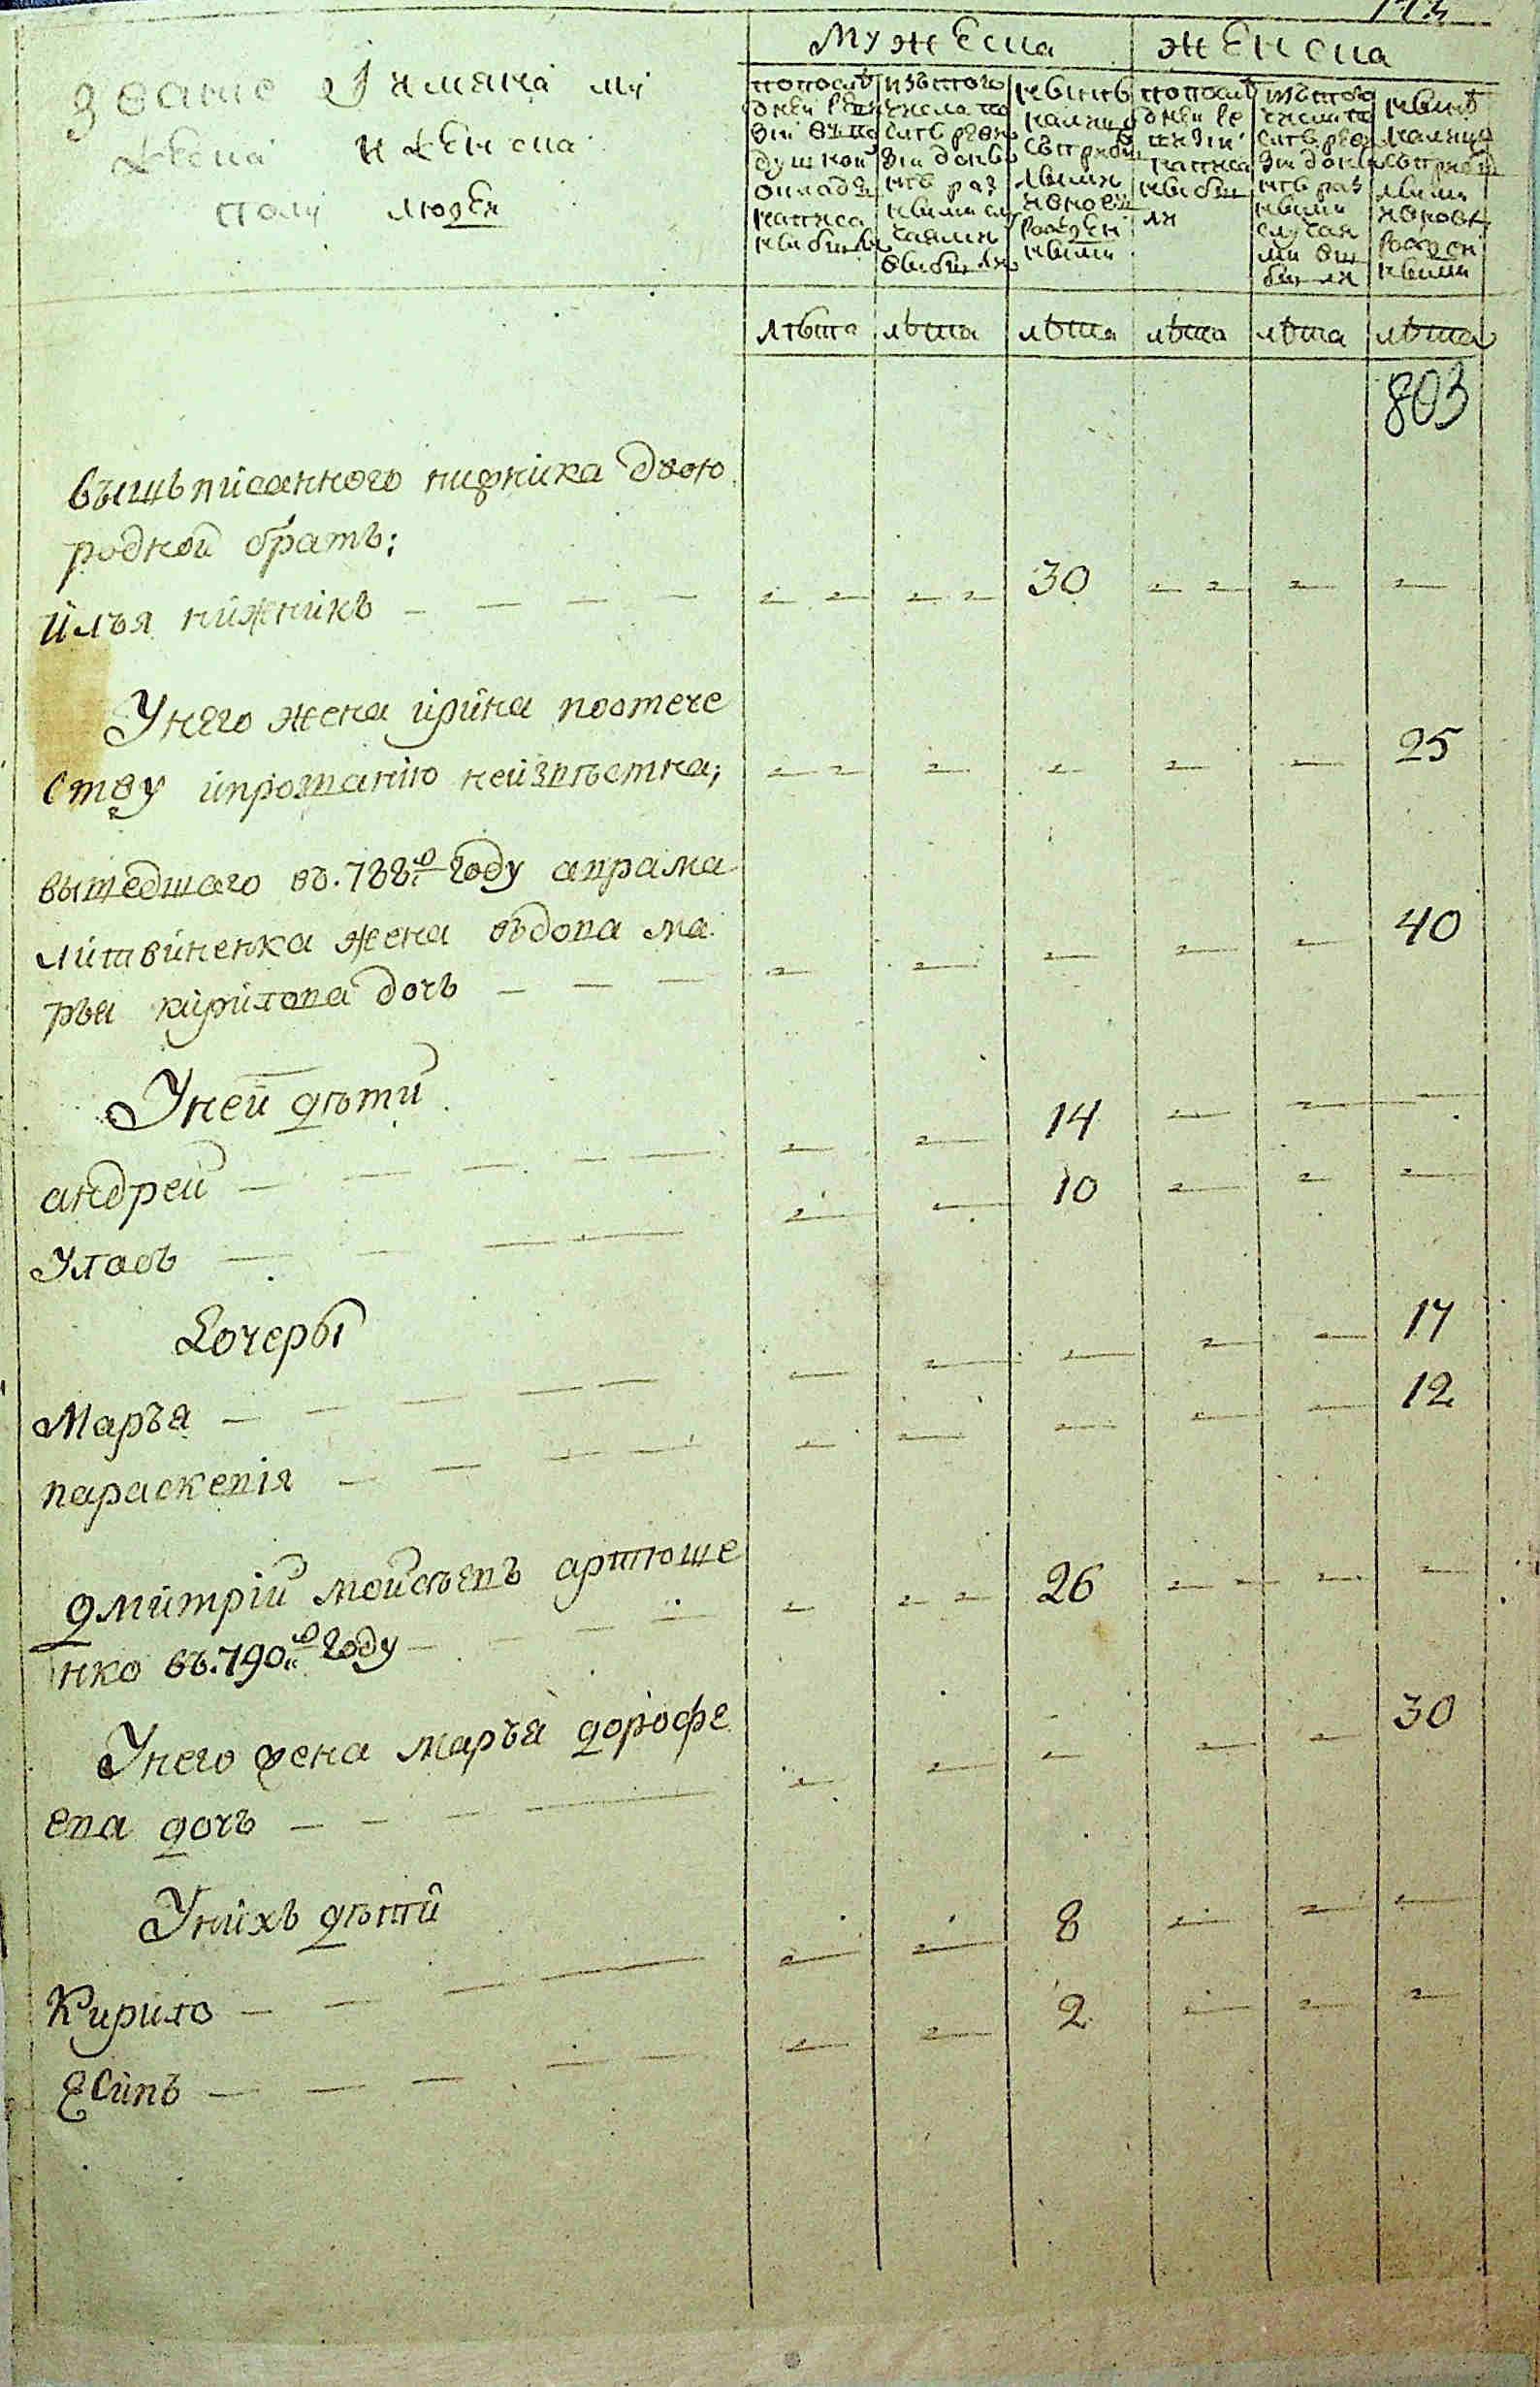 Мужеска женска
Звание и имяна му
жеска и женска
полу людеи
попослѣ
дней реви
зіи въ по
душной
окладъ
написа
ныи были
изъ того
числа по
слѣ реви
зіи до нынѣ
разными
случаями
выбыли
нынѣ
налицо
съ прибы
лыми
и вновь
рожден
ными
попослѣ
дней ре
визіи
написа
ныи бы
ли
изъ того
числа по
слѣ реви
зіи до нынѣ
разными
случая
ми вы
были
нынѣ
налицо
съ прибы
лыми
и вновь
рожден
ными
лѣта лѣта лѣта лѣта лѣта лѣта
803
вышъписанного нижника двою
родной братъ;
илъя нижникъ 30
Унего жена ирина поотече
ству ипрозванию неизвѣстна; 25
вышедшаго въ. 788го году аврама
литвиненка жена вдова ма
ръя кирилова дочъ 40
Уней дѣти
андрей 14
Уласъ 10
Дочеры
Маръя 17
параскевія 12
дмитрій мойсѣевъ артюше
нко въ. 790го году 26
Унего жена маръя дорофе
ева дочъ 30
Унихъ дѣти
Кирило 8
Есипъ 2